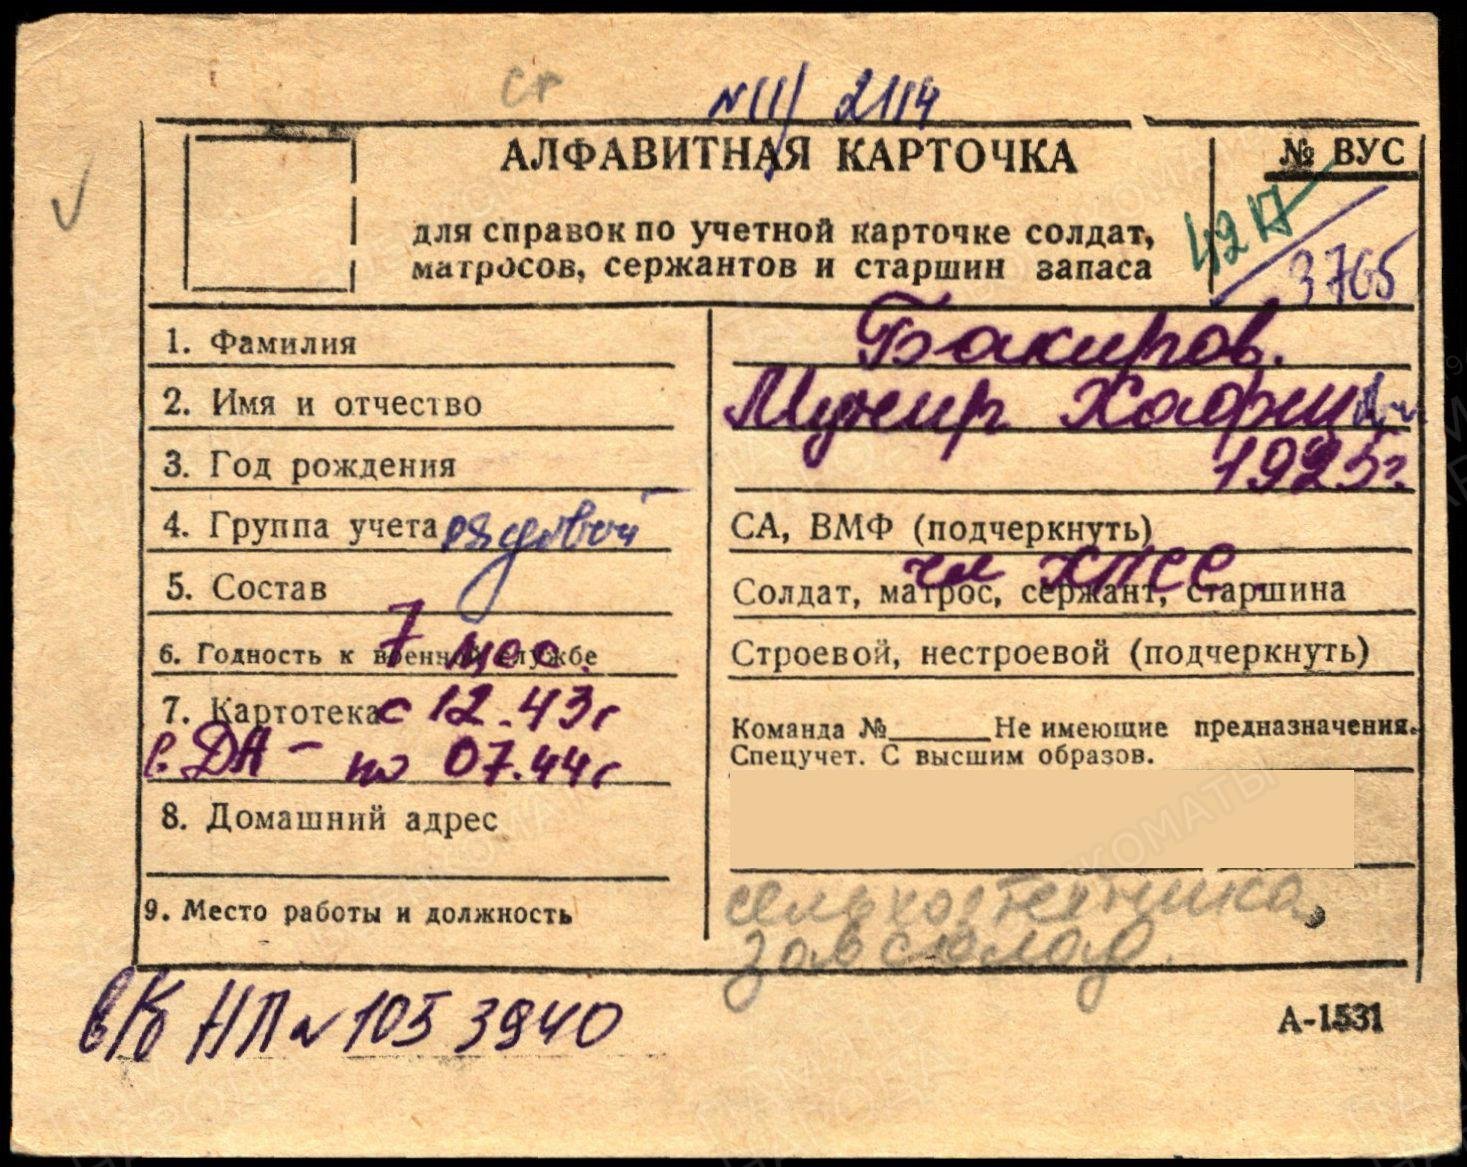 ст
АЛФАВИТНАЯ КАРТОЧКА
№ ВУС
для справок по учетной карточке солдат,
матросов, сержантов и старшин запаса
4217
3765
1. Фамилия
Бакиров.
2. Имя и отчество
Мунир
3. Год рождения
1925г.
4. Группа учета рядовой
СА, ВМФ (подчеркнуть)
чл КПСС.
5. Состав
Солдат, матрос, сержант, старшина
7 мес.
6. Годность к военной службе
Строевой, нестроевой (подчеркнуть)
7. Картотека с 12.43г
в ДА - по 07.44г
Команда № Не имеющие предназначения.
Спецучет. С высшим образов.
8. Домашний адрес
9. Место работы и должность
сельхозтехника,
завсклад.
НП № 105 3940
А-1531